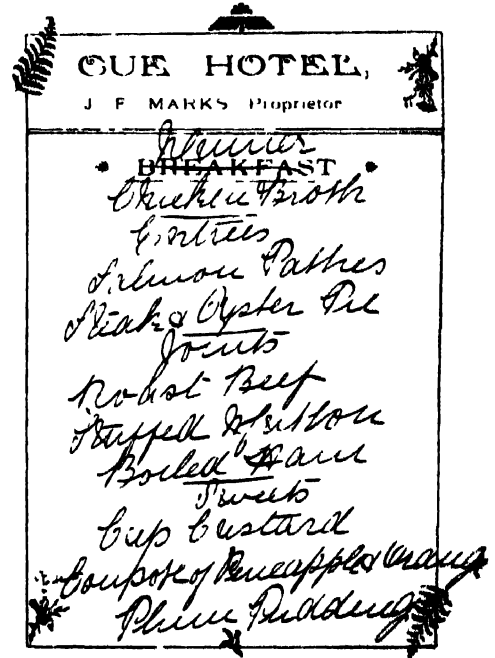 CUE HOTEL,
J F MARKS Proprietor
Dinner
BREAKFAST
Chicken Broth
Entrees
Salmon Patties
Steak & Oyster Pie
Joints
Roast Beef
Stuffed Mutton
Boiled Ham
Sweets
Cup Custard
Compote of Pineapple & Orange
Plum Pudding